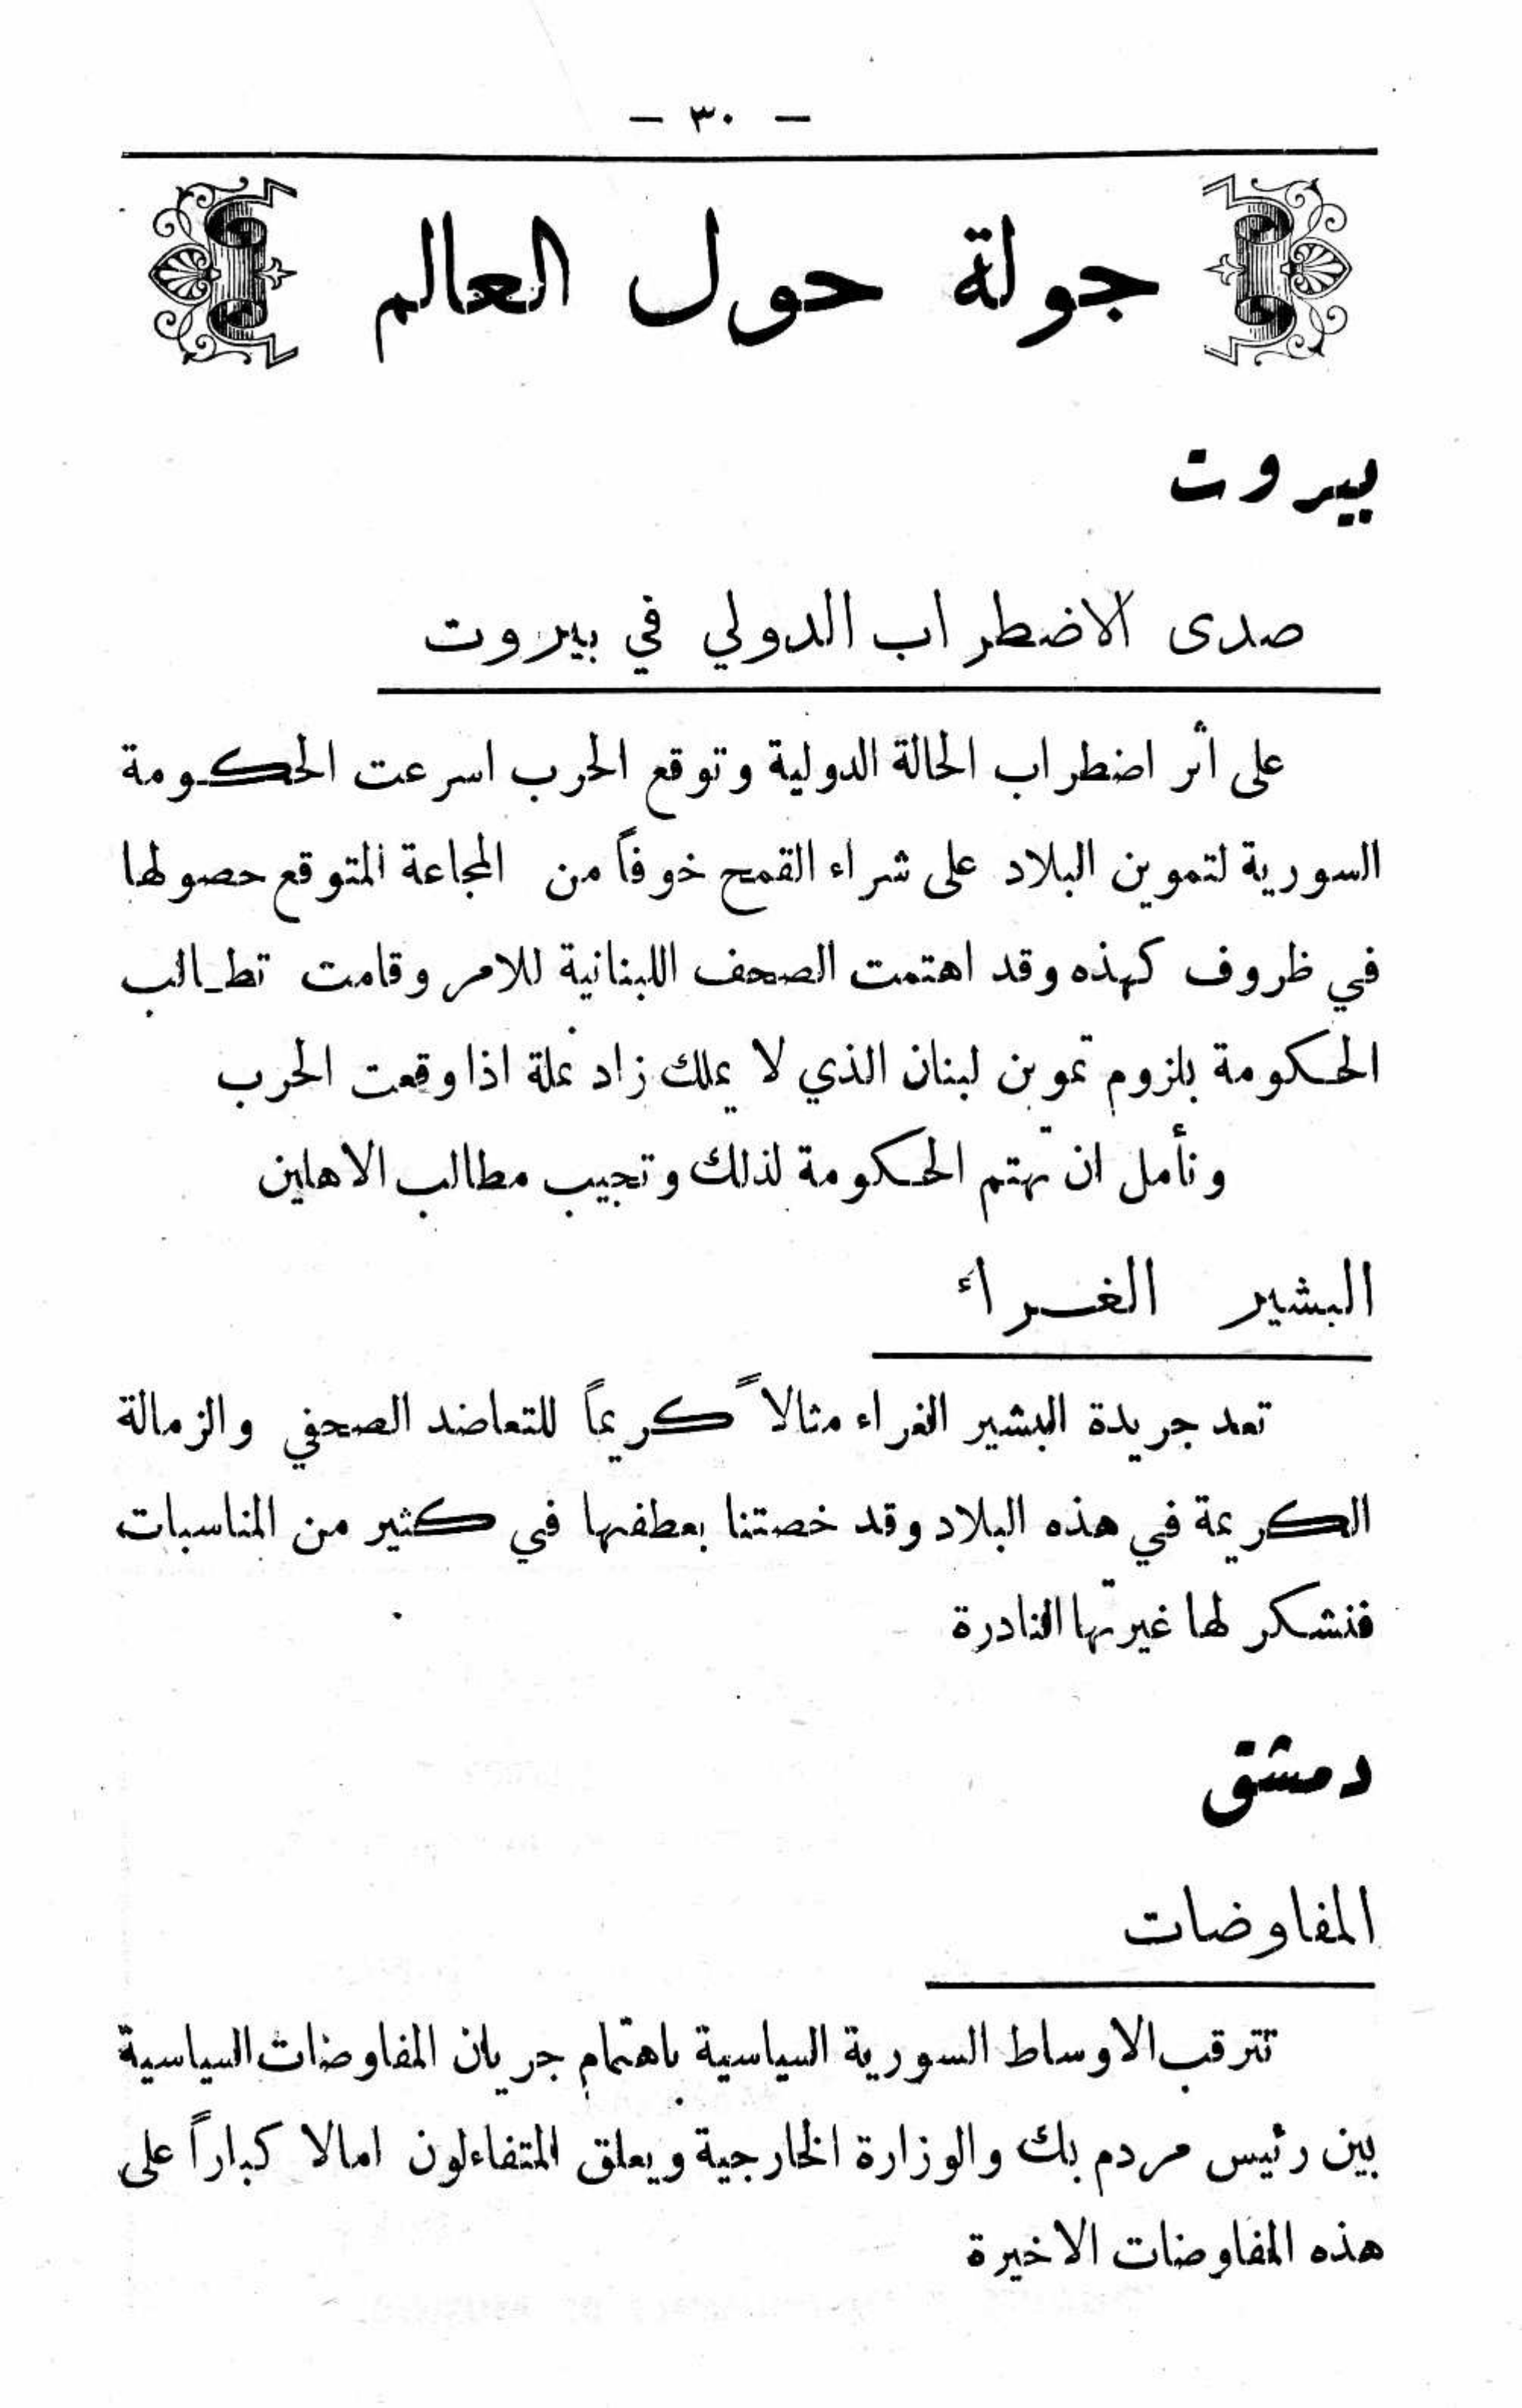 — ٣٠ —
جولة حول العالم
بيروت
صدى الاضطراب الدولي في بيروت
على أثر اضطراب الحالة الدولية وتوقع الحرب اسرعت الحكومة
السورية لتموين البلاد على شراء القمح خوفاً من المجاعة المتوقع حصولها
في ظروف كهذه وقد اهتمت الصحف اللبنانية للامر وقامت تطالب
الحكومة بلزوم تموين لبنان الذي لا يملك زاد نملة اذا وقعت الحرب
ونأمل ان تهتم الحكومة لذلك وتجيب مطالب الاهلين
البشير الغراء
تعد جريدة البشير الغراء مثالاً كريماً للتعاضد الصحفي والزمالة
الكريمة في هذه البلاد وقد خصتنا بعطفها في كثير من المناسبات
فنشكر لها غيرتها النادرة
دمشق
المفاوضات
تترقب الاوساط السورية السياسية باهتمام جريان المفاوضات السياسية
بين رئيس مردم بك والوزارة الخارجية ويعلق المتفاءلون امالا كباراً على
هذه المفاوضات الاخيرة